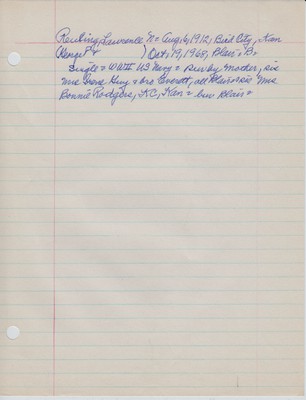 Reuling, Lawrence N. Aug. 6, 1912, Bird City, Kan
) Oct. 19, 1968, Blair = B.
Single = WW II US Navy = Surv by Mother, sis
Mrs Irene Guy = bro Everett, all Blair = sis Mrs
Bonnie Rodgers, KC, Kan = bur Blair =